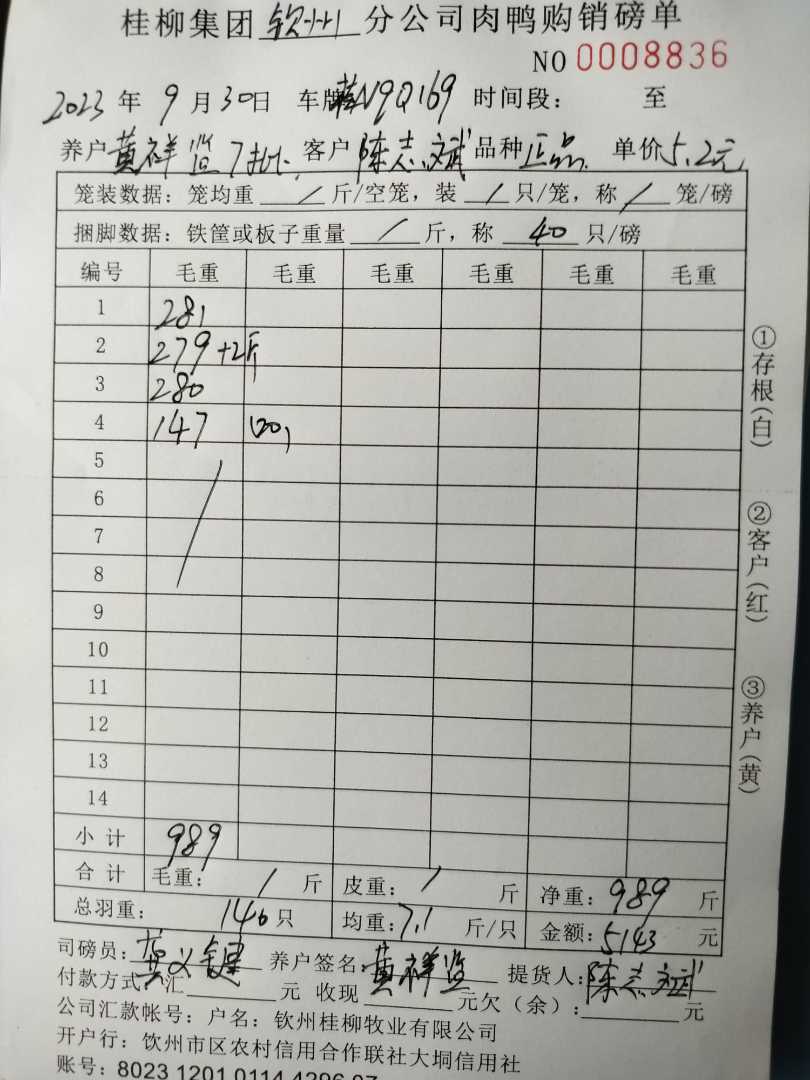 桂柳集团 钦州 分公司肉鸭购销磅单
NO 0008836
2023 年 9 月 30 日 车牌 N9Q169 时间段: 至
养户 黄祥监 7批. 客户 陈志斌 品种 正品. 单价 5.2元
笼装数据:笼均重 / 斤/空笼,装 / 只/笼,称 / 笼/磅
捆脚数据:铁筐或板子重量 / 斤,称 40 只/磅
编号 毛重 毛重 毛重 毛重 毛重 毛重
1 281
2 279+2斤
3 280
4 147
5
6
7
8
9
10
11
12
13
14
小计 989
合计 毛重: / 斤 皮重: / 斤 净重: 989 斤
总羽重: 146 只 均重: 7.1 斤/只 金额: 5143 元
司磅员: 黄义键 养户签名: 黄祥监 提货人: 陈志斌
付款方式: 汇 元 收现 元欠(余): 元
公司汇款帐号:户名:钦州桂柳牧业有限公司
开户行:钦州市区农村信用合作联社大垌信用社
账号:8023 1201 0114 4296 07
①存根(白)
②客户(红)
③养户(黄)